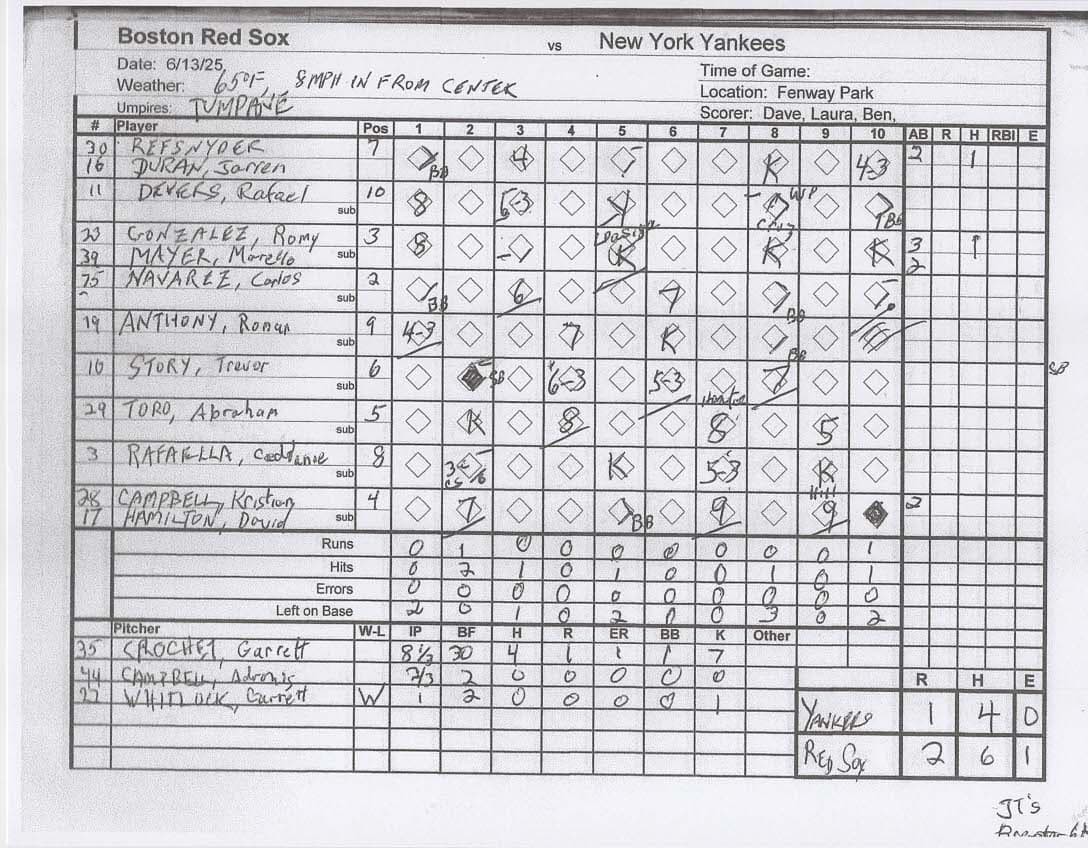 Boston Red Sox vs New York Yankees
Date: 6/13/25,
Weather: 65°F, 8 MPH IN FROM CENTER
Time of Game:
Location: Fenway Park
Umpires: TUMPANE
Scorer: Dave, Laura, Ben,
# Player Pos 1 2 3 4 5 6 7 8 9 10 AB R H RBI E
30 REFSNYDER 7 BB 4 K 4-3 2 1
16 DURAN, Jarren
11 DEVERS, Rafael 10 8 5-3 WP IBB
sub
23 GONZALEZ, Romy 3 8 K K K 3 1
39 MAYER, Marcello sub 2
75 NAVAREZ, Carlos 2 BB 6 7 BB
sub
19 ANTHONY, Roman 9 4-3 7 K BB
sub
10 STORY, Trevor 6 SB 6-3 5-3 7 SB
sub
29 TORO, Abraham 5 K 8 8 5
sub
3 RAFAELLA, Ceddanne 8 K 5-3 K
sub
28 CAMPBELL, Kristian 4 7 BB 9 9 2
17 HAMILTON, David sub
Runs 0 1 0 0 0 0 0 0 0 1
Hits 0 2 1 0 1 0 0 1 0 1
Errors 0 0 0 0 0 0 0 0 0 0
Left on Base 2 0 1 0 2 0 0 3 0 2
Pitcher W-L IP BF H R ER BB K Other
35 CROCHET, Garrett 8 1/3 30 4 1 1 1 7
44 CAMPBELL, 2/3 2 0 0 0 0 0
22 WHITLOCK, Garrett W 1 2 0 0 0 0 1
R H E
YANKEES 1 4 0
RED SOX 2 6 1
JT's